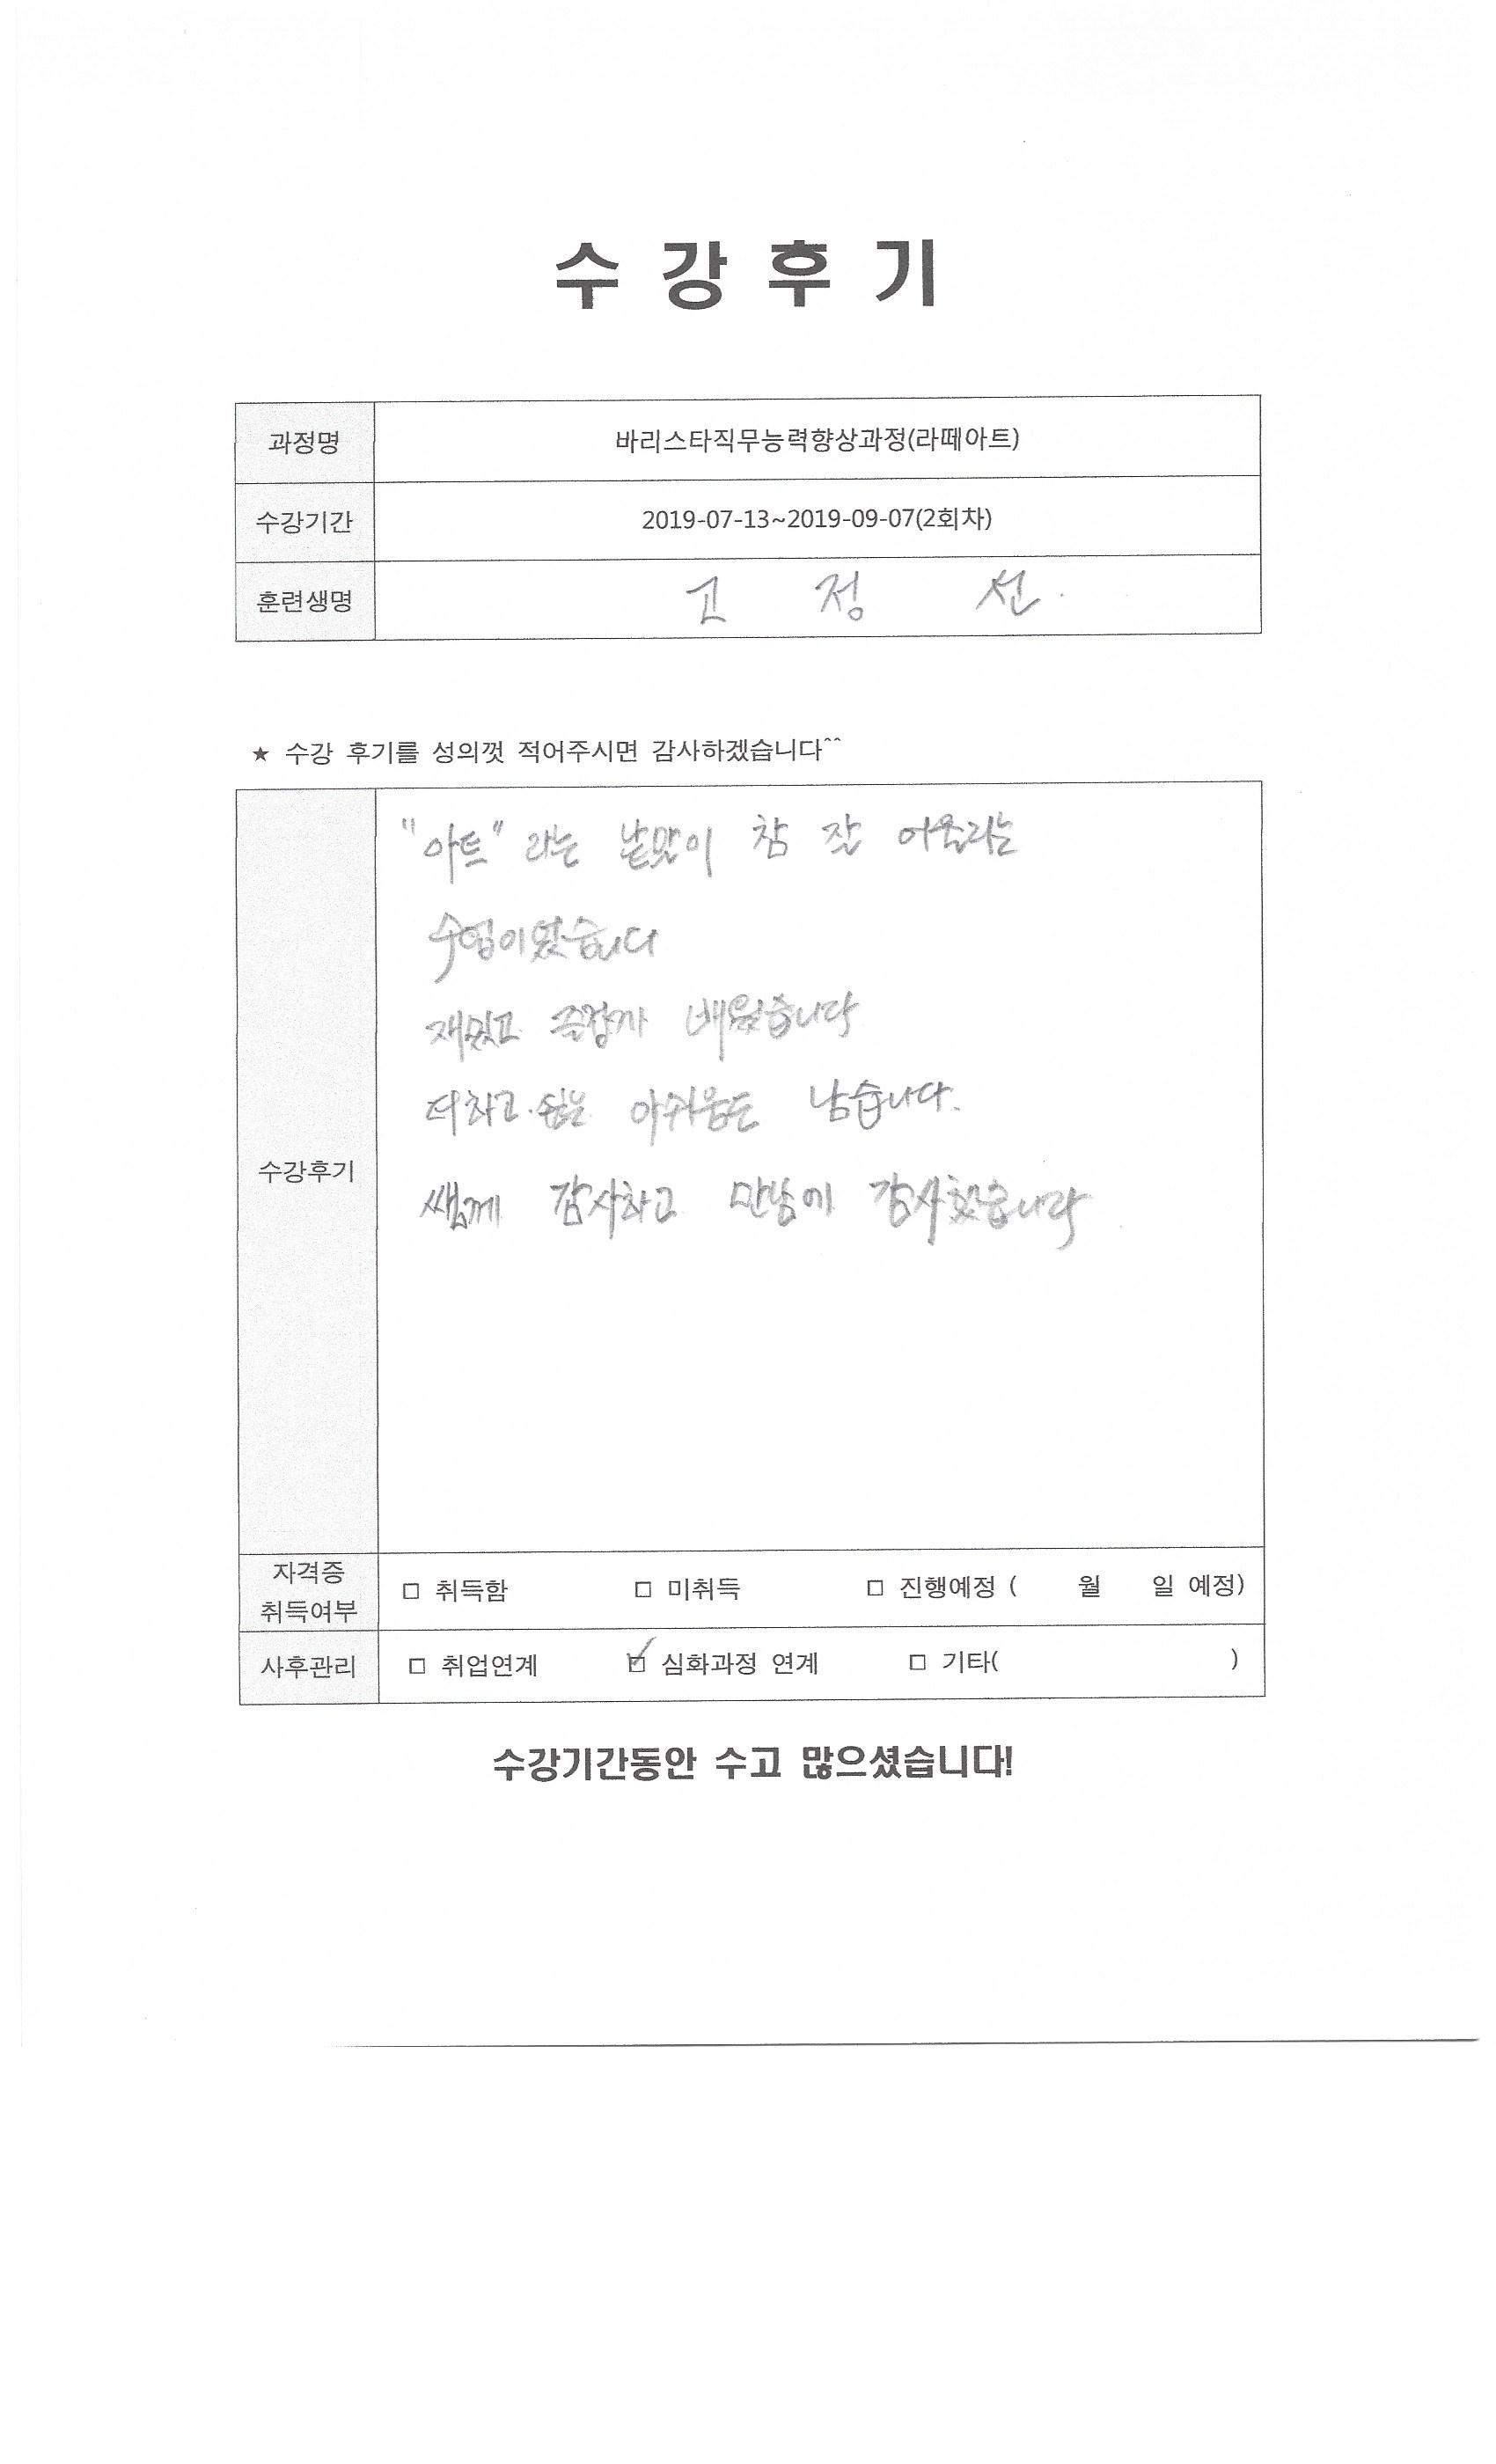 수 강 후 기
과정명 바리스타직무능력향상과정(라떼아트)
수강기간 2019-07-13~2019-09-07(2회차)
훈련생명 고 정 선.
★ 수강 후기를 성의껏 적어주시면 감사하겠습니다^^
"아트"라는 낱말이 참 잘 어울리는
수업이였습니다
재밌고 즐겁게 배웠습니다
더하고 싶은 아쉬움도 남습니다.
수강후기
쌤께 감사하고 만남에 감사했습니다
자격증
취득여부 □ 취득함 □ 미취득 □ 진행예정 ( 월 일 예정)
사후관리 □ 취업연계 ☑ 심화과정 연계 □ 기타( )
수강기간동안 수고 많으셨습니다!